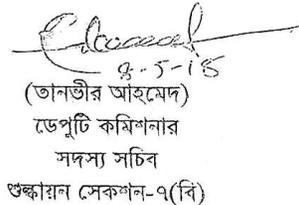 ৪-5-18
(তানভীর আহমেদ)
ডেপুটি কমিশনার
সদস্য সচিব
শুল্কায়ন সেকশন-৭(বি)